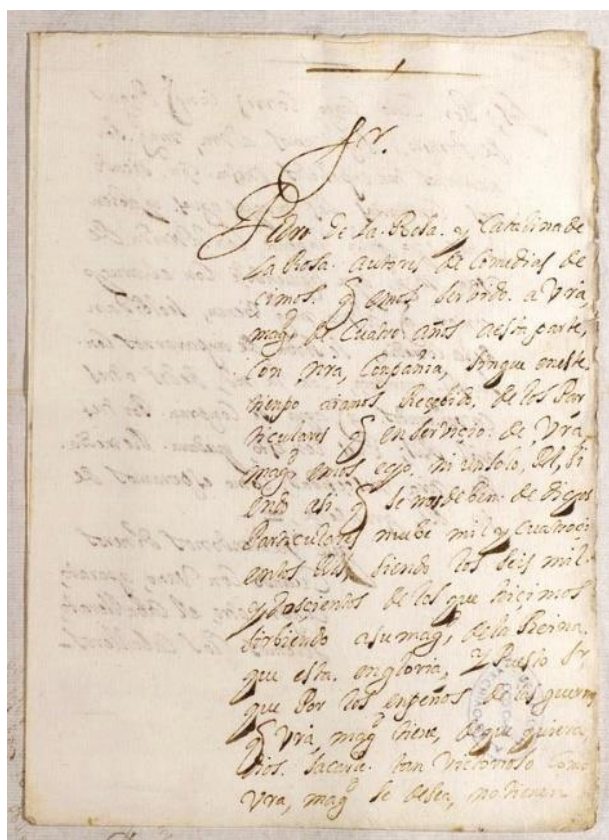 Sr.
Pedro de la Rosa. y Catalina de
la Rosa. autores de Comedias de
cimos. q emos serbido. a Vra
magd de Cuatro años a esta parte,
Con nra, Conpañia, sin que en este
tienpo aiamos Recebido, de los Par
ticulares q en serviçio. de Vra,
magd emos, eço, ni un solo, Rl, si
endo asi q se nos deben. de diços
Particulares nuebe mil y Cuatroçi
entos Rls, siendo los seis mil.
y dosçientos de los que hiçimos
sirbiendo a su magd, de la Reina,
que esta. en gloria, y Puesto Sr,
que Por los enpeños de las guerras
q Vra magd tiene, de que quiera
dios. sacarle. tan Victorioso Como
Vra, magd se desea, no tienen